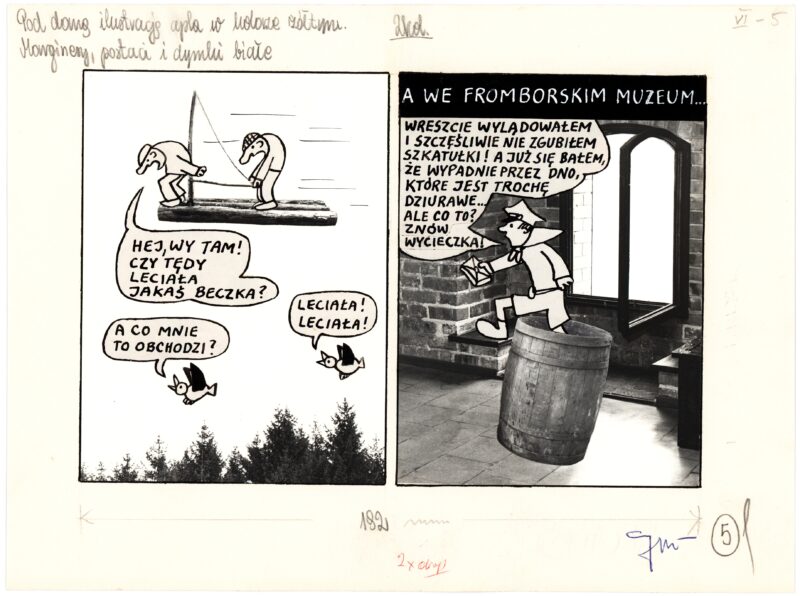 Pod daną ilustracją apla w kolorze żółtym.
Marginesy, postaci i dymki białe
2kol.
VI - 5
HEJ, WY TAM!
CZY TĘDY
LECIAŁA
JAKAŚ BECZKA?
LECIAŁA!
LECIAŁA!
A CO MNIE
TO OBCHODZI?
A WE FROMBORSKIM MUZEUM...
WRESZCIE WYLĄDOWAŁEM
I SZCZĘŚLIWIE NIE ZGUBIŁEM
SZKATUŁKI! A JUŻ SIĘ BAŁEM,
ŻE WYPADNIE PRZEZ DNO,
KTÓRE JEST TROCHĘ
DZIURAWE...
ALE CO TO?
ZNÓW
WYCIECZKA!
182
5